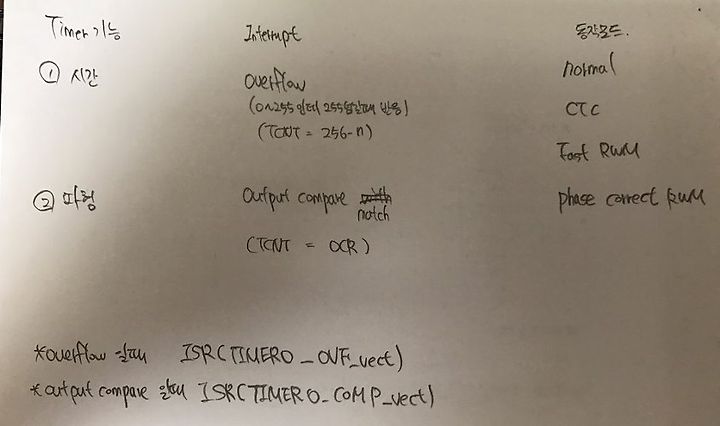 Timer 기능 Interrupt 동작모드.
① 시간 Overflow normal
(0~255 인데 255넘을때 반응) CTC
(TCNT = 256-n)
Fast PWM
② 파형 Output compare match phase correct PWM
(TCNT = OCR)
*overflow 일때 ISR(TIMER0_OVF_vect)
*output compare 일때 ISR(TIMER0_COMP_vect)